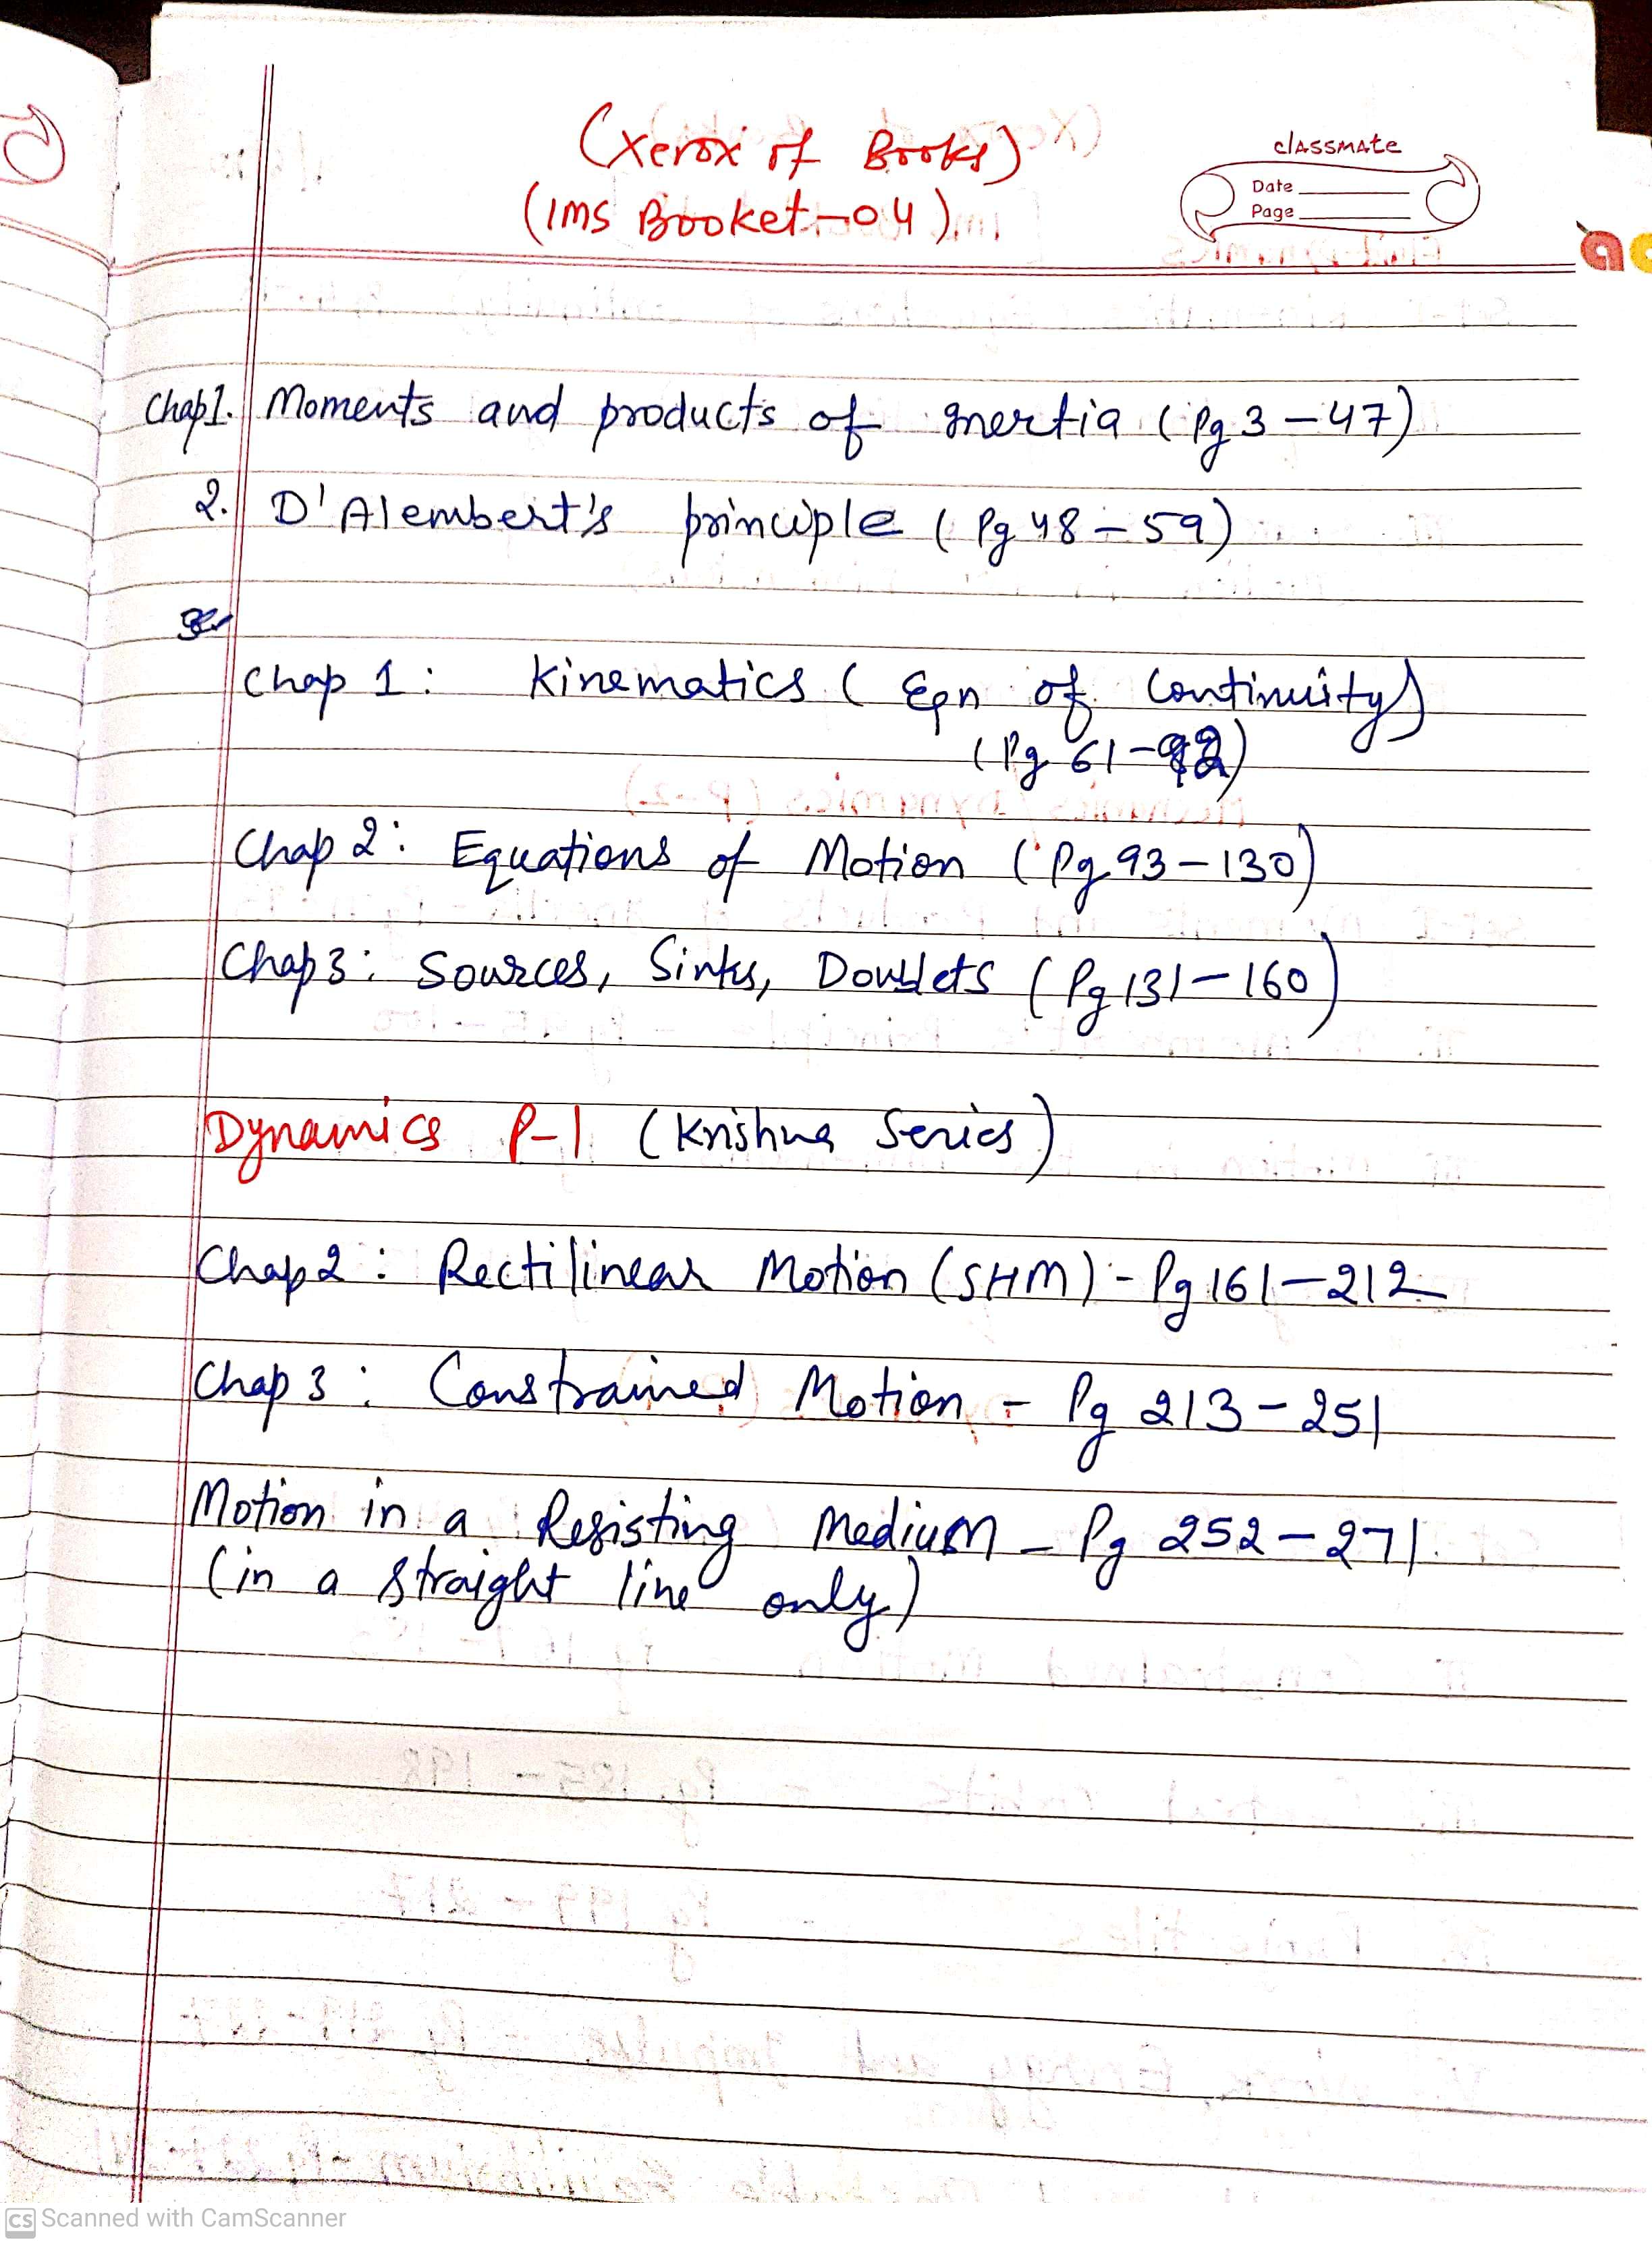 (Xerox of Books)
(IMS Booket-04)
classmate
Date
Page
Chap1. Moments and products of Inertia (Pg 3-47)
2. D'Alembert's principle (Pg 48-59)
Chap 1: Kinematics (Eqn of Continuity)
(Pg 61-92)
Chap 2: Equations of Motion (Pg 93-130)
Chap 3: Sources, Sinks, Doublets (Pg 131-160)
Dynamics P-1 (Krishna Series)
Chap 2: Rectilinear Motion (SHM) - Pg 161-212
Chap 3: Constrained Motion - Pg 213-251
Motion in a Resisting Medium - Pg 252-271.
(in a straight line only)
CS Scanned with CamScanner